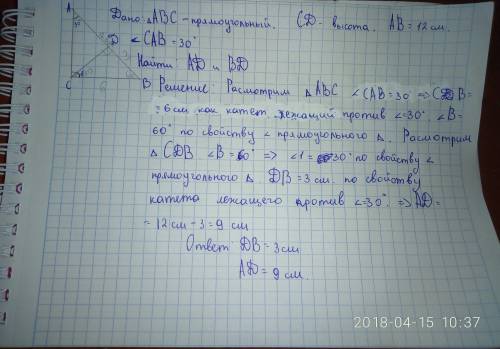 A
Дано: △ABC - прямоугольный. CD - высота. AB = 12 см.
D ∠CAB = 30°
Найти AD и BD
C B Решение: Расмотрим △ABC ∠CAB = 30° => CB =
= 6 см как катет лежащий против ∠30°. ∠B =
60° по свойству ∠ прямоугольного △. Расмотрим
△CDB ∠B = 60° => ∠1 = 30° по свойству ∠
прямоугольного △ DB = 3 см. по свойству
катета лежащего против ∠=30°. => AD =
= 12 см - 3 = 9 см
Ответ DB = 3 см
AD = 9 см.
2018-04-15 10:37